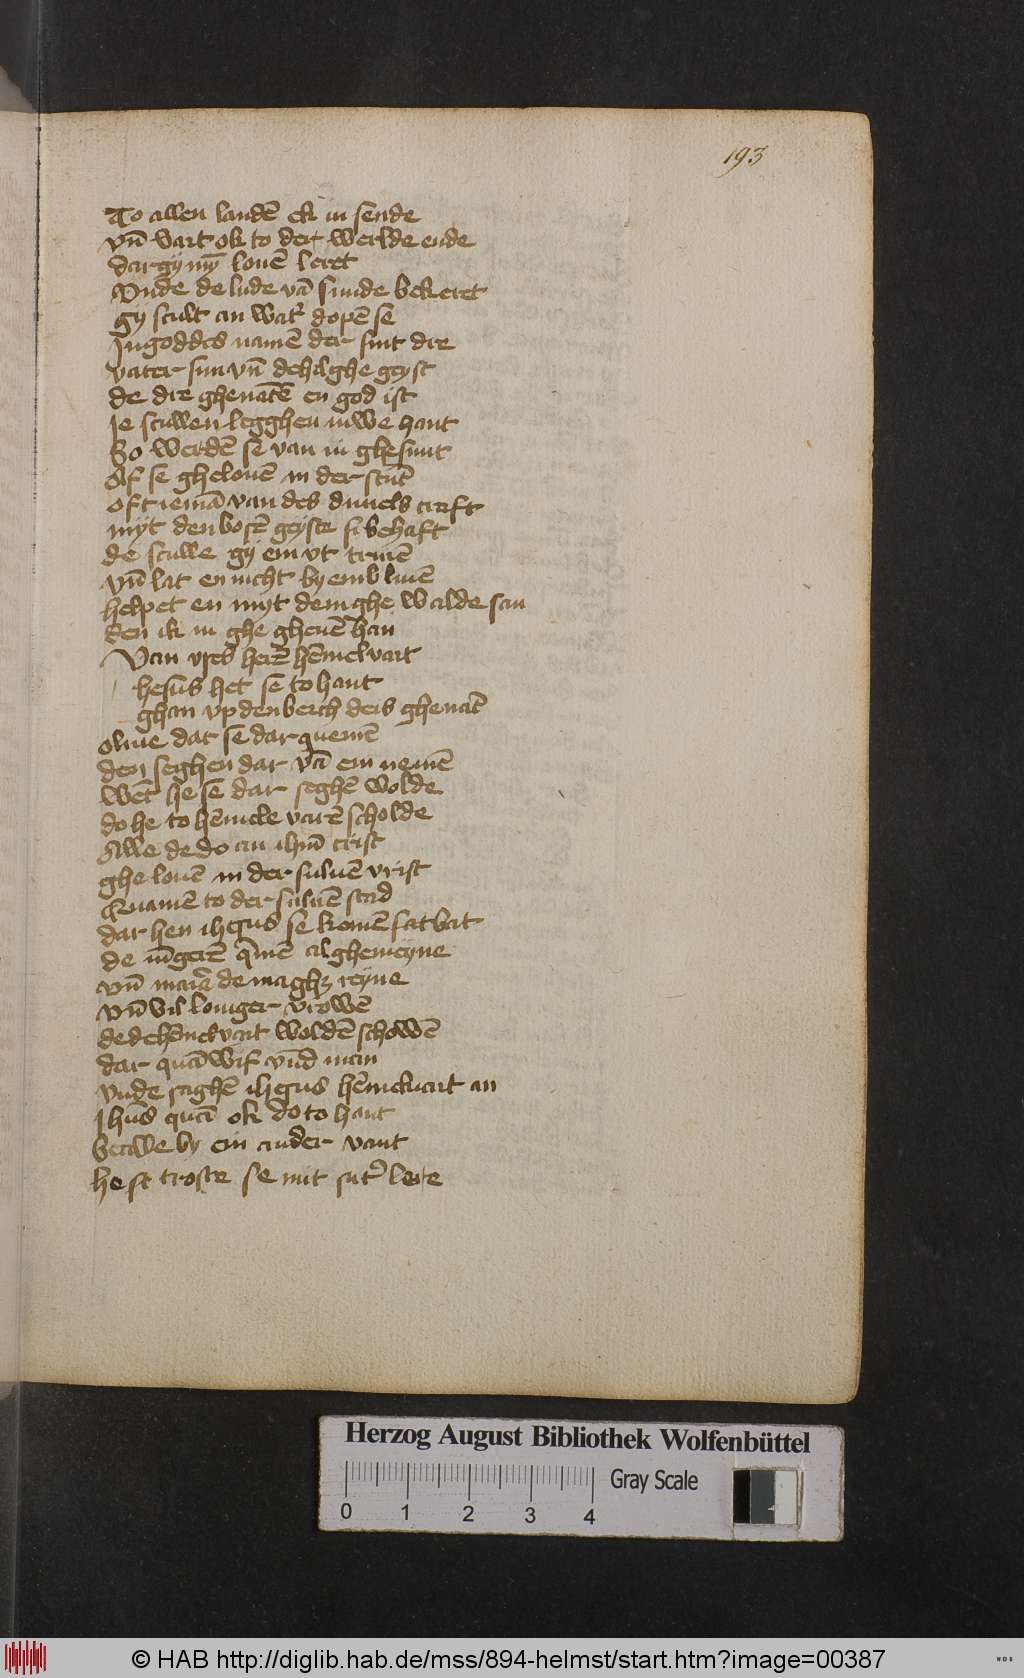 193
To allen landē ek iu sende
vn̄ vart ok to der werlde ende
dar gy mȳ louē leret
Vnde de lude vā sunde bekeret
gy scult an wat' dopē se
In goddes namē der sint dre
vater sun vn̄ de hilghe geyst
de dre ghenātē en god ist
Je scullen legghen iuwe hant
So werdē se van iu ghesunt
Af se ghelouē in der stūt
oft iemā van des duuels craft
myt den bosē geyste si behaft
de sculle gy em vt triuē
vn̄ lat en nicht by em bliuē
helpet en myt dem ghewalde san
Den ik iu ghe gheuē han
Van vses herē hēmelvart
hesus het se to hant
ghan vp den berch des ghenāt
oliue dat se dar quemē
den seghen dar vā em nemē
wēt he se dar seghē wolde
do he to hēmele varē scholde
Alle de do an ihm̄ crist
ghe louē in der suluē vrist
quamē to der suluē stad
dar hen ihesus se komē bat
de iūgerē q̄mē al ghemeyne
vn̄ mariā de maghȝ reyne
vn̄ vil loniger vrowē
de de hēmelvart woldē schowē
dar quā wif vnd man
vnde saghē ihesus hēmeluart an
Jhūs quā ok do to hant
betalle by ein ander vant
he st troste se mit sut' lere
Herzog August Bibliothek Wolfenbüttel
0 1 2 3 4
Gray Scale
© HAB http://diglib.hab.de/mss/894-helmst/start.htm?image=00387